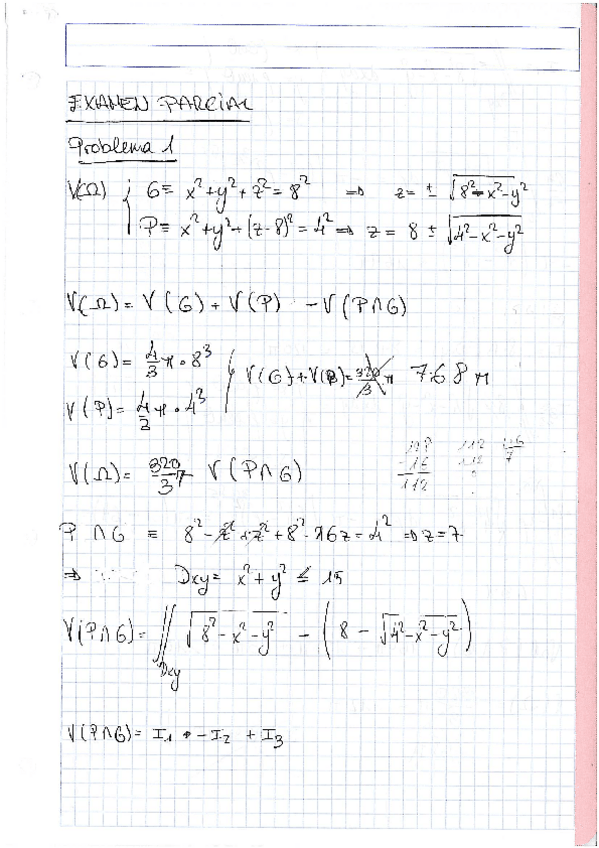 EXAMEN PARCIAL
Problema 1
V(Ω) { G ≡ x² + y² + z² = 8² ⇒ z = ± √(8² - x² - y²)
P ≡ x² + y² + (z-8)² = 4² ⇒ z = 8 ± √(4² - x² - y²)
V(Ω) = V(G) + V(P) - V(P∩G)
V(G) = 4/3 π · 8³
V(G) + V(P) = 320/3 π 768 π
V(P) = 4/3 π · 4³
V(Ω) = 320/3 π V(P∩G)
128 - 16 112
P ∩ G ≡ 8² - z² + z² + 8² - 16z = 4² ⇒ z = 7
⇒ Dxy = x² + y² ≤ 15
V(P∩G) = ∬Dxy √(8² - x² - y²) - (8 - √(4² - x² - y²))
V(P∩G) = I₁ - I₂ + I₃